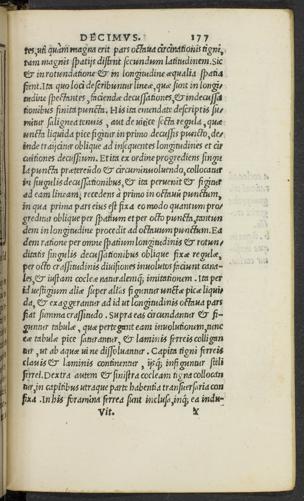 DECIMVS. 177
tes, uti quàm magna erit pars octaua circinationis tigni,
tam magnis spatijs distent secundum latitudinem. Sic
& in rotundatione & in longitudine æqualia spatia
fient. Ita quo loci describuntur lineæ, quæ sunt in longi-
tudine spectantes, faciendæ decussationes, & in decussa
tionibus finita puncta. His ita emendate descriptis su-
mitur salignea tenuis, aut de uitice secta regula, quæ
uncta liquida pice figitur in primo decussis puncto, de-
inde traijcitur oblique ad insequentes longitudinis et cir
cuitiones decussium. Et ita ex ordine progrediens singu
la puncta prætereundo & circuminuoluendo, collocatur
in singulis decussationibus, & ita peruenit & figitur
ad eam lineam, recedens à primo in octauum punctum,
in qua prima pars eius est fixa eo modo quantum pro
greditur oblique per spatium et per octo puncta, tantun
dem in longitudine procedit ad octauum punctum. Ea
dem ratione per omne spatium longitudinis & rotun-
ditatis singulis decussationibus oblique fixæ regulæ,
per octo crassitudinis diuisiones inuolutos faciunt cana-
les, & iustam cocleæ naturalemq́; imitationem. Ita per
id uestigium aliæ super alias figuntur unctæ pice liqui
da, & exaggerantur ad id ut longitudinis octaua pars
fiat summa crassitudo. Supra eas circundantur & fi-
guntur tabulæ, quæ pertegant eam inuolutionem, tunc
eæ tabulæ pice saturantur, & laminis ferreis colligan
tur, ut ab aquæ ui ne dissoluantur. Capita tigni ferreis
clauis & laminis continentur, ijsq́; infiguntur stili
ferrei. Dextra autem & sinistra cocleam tigna collocan
tur, in capitibus utraque parte habentia transuersaria con
fixa. In his foramina ferrea sunt inclusa, inq́; ea indu-
Vit.